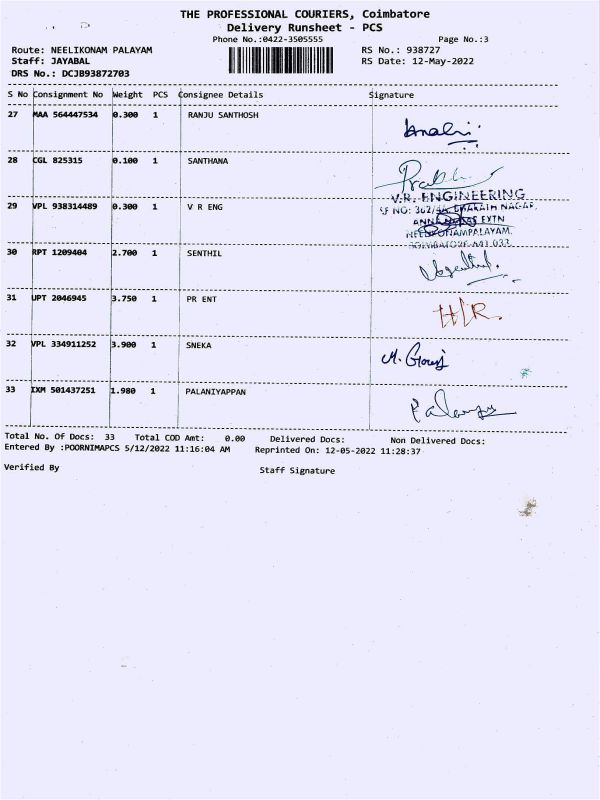 THE PROFESSIONAL COURIERS, Coimbatore
Delivery Runsheet - PCS
Phone No.:0422-3505555 Page No.:3
Route: NEELIKONAM PALAYAM RS No.: 938727
Staff: JAYABAL RS Date: 12-May-2022
DRS No.: DCJB93872703
S No Consignment No Weight PCS Consignee Details Signature
27 MAA 564447534 0.300 1 RANJU SANTHOSH
28 CGL 825315 0.100 1 SANTHANA
V.R. ENGINEERING
29 VPL 938314489 0.300 1 V R ENG
SF NO: 362/4A, BHARATH NAGAR,
EXTN
NEELIKONAMPALAYAM,
COIMBATORE-641 033
30 RPT 1209404 2.700 1 SENTHIL
31 UPT 2046945 3.750 1 PR ENT H/R.
32 VPL 334911252 3.900 1 SNEKA M. Gowri
33 IXM 501437251 1.980 1 PALANIYAPPAN
Total No. Of Docs: 33 Total COD Amt: 0.00 Delivered Docs: Non Delivered Docs:
Entered By :POORNIMAPCS 5/12/2022 11:16:04 AM Reprinted On: 12-05-2022 11:28:37
Verified By Staff Signature